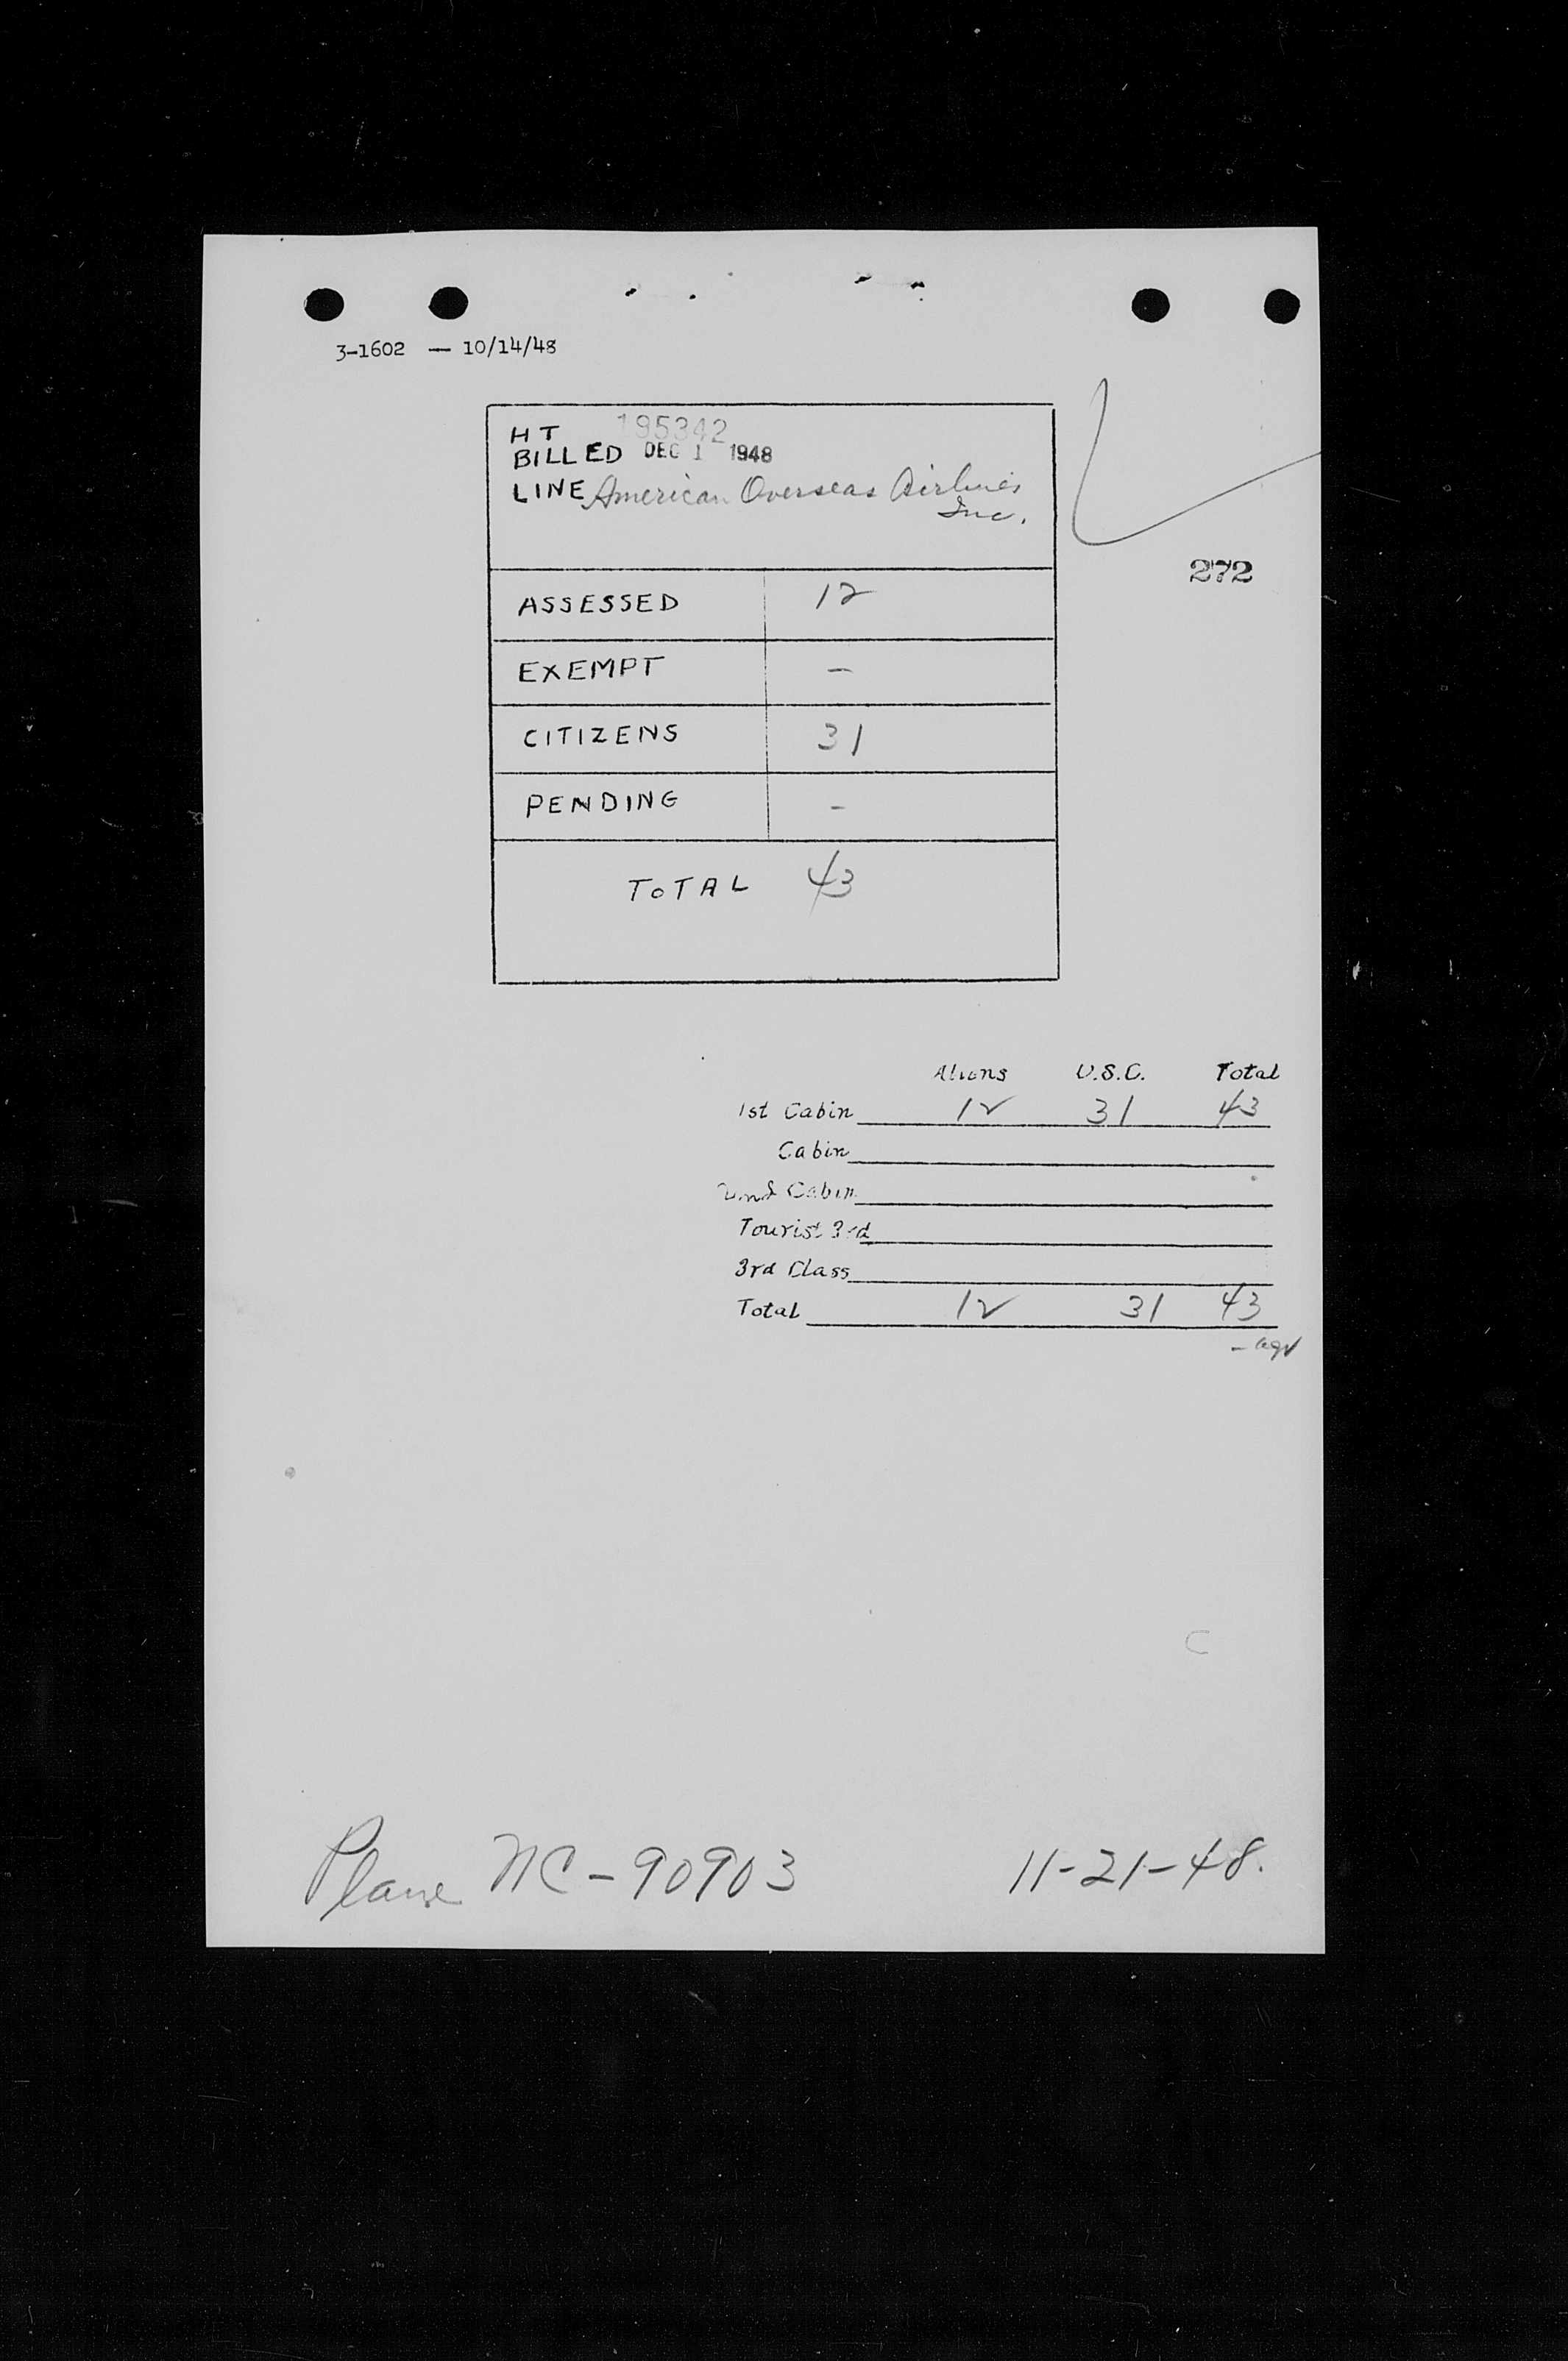 3-1602 — 10/14/48
HT 195342
BILLED DEC 1 1948
LINE American Overseas Airlines
Inc.
272
ASSESSED 12
EXEMPT —
CITIZENS 31
PENDING -
TOTAL 43
Aliens U.S.C. Total
1st Cabin 12 31 43
Cabin
2nd Cabin
Tourist 3rd
3rd Class
Total 12 31 43
C
Plane NC-90903 11-21-48.